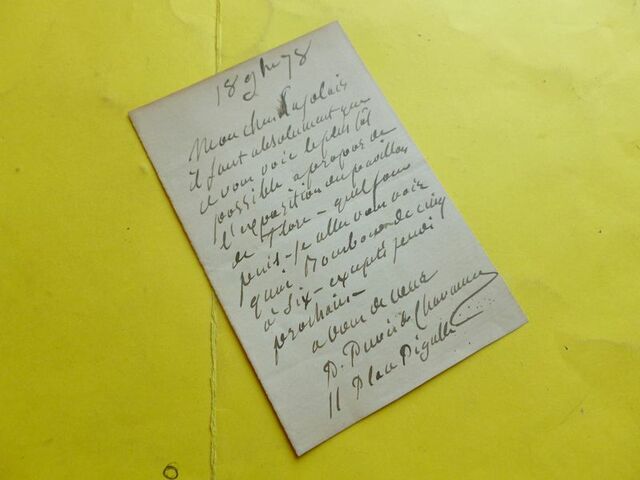 18 9bre 78
Mon cher
il faut absolument que
je vous voie le plus tôt
possible à propos de
l'exposition du pavillon
de Flore - quel jour
puis-je aller vous voir
quai Bourbon de cinq
à Six - excepté jeudi
prochain -
a vous de cœur
P. Puvis de Chavannes
11 Place Pigalle